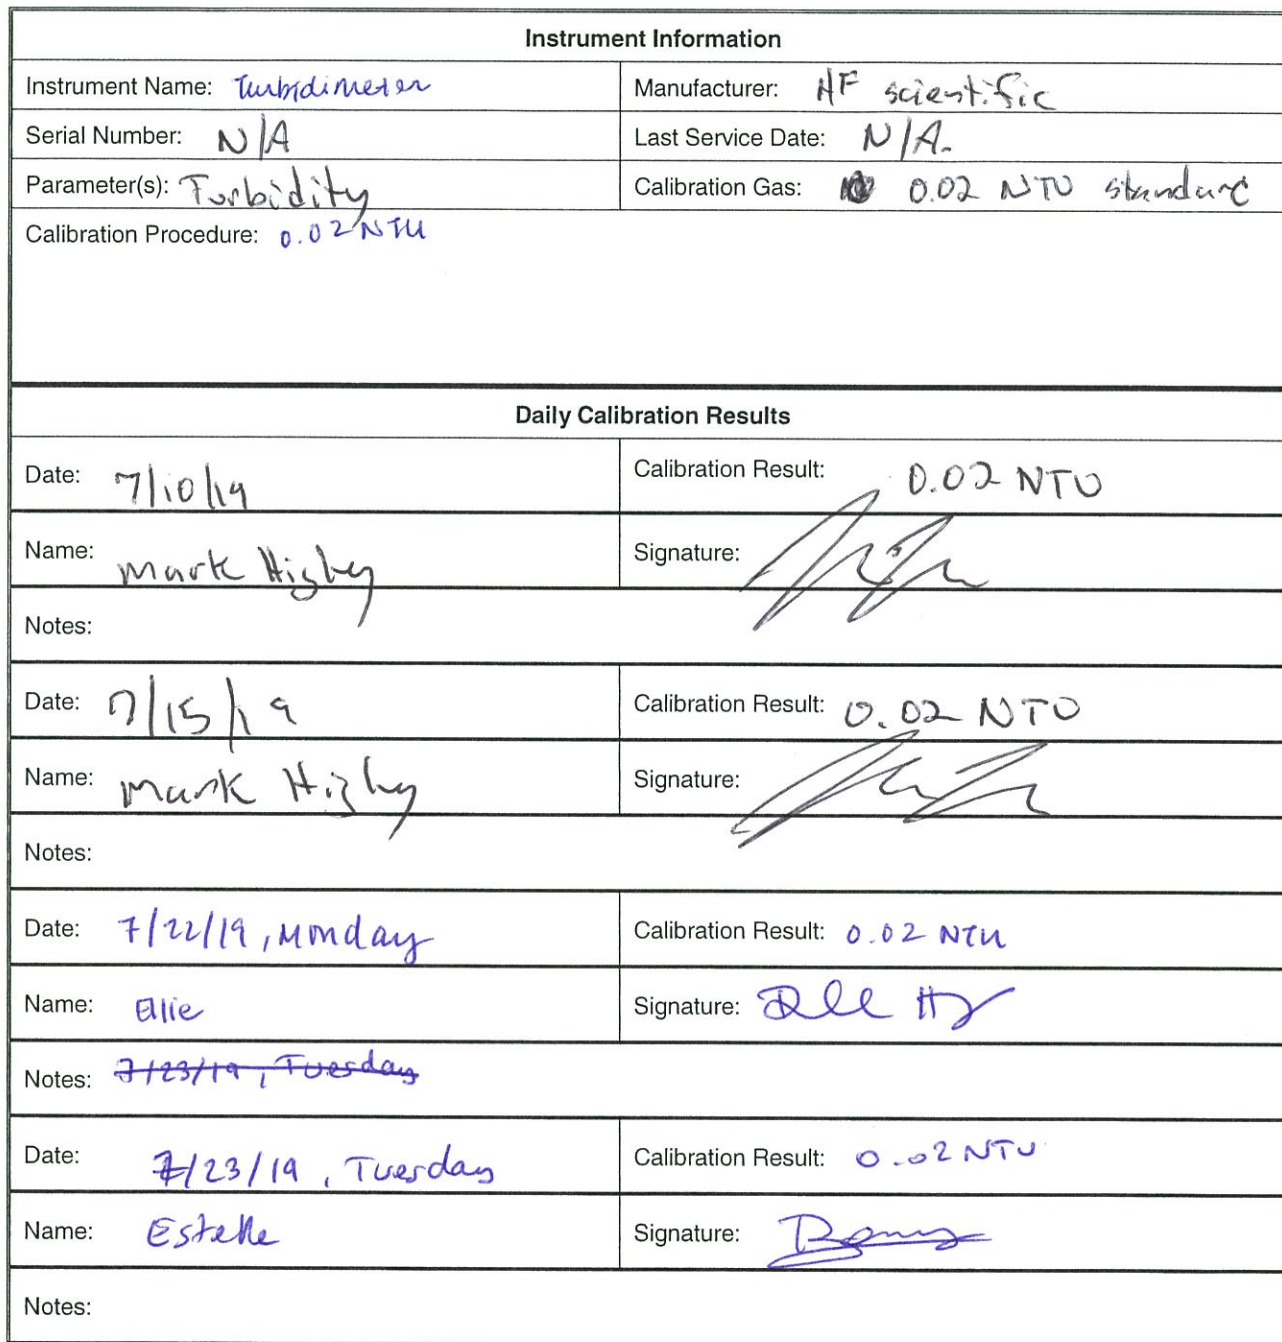 Instrument Information
Instrument Name: Turbidimeter
Manufacturer: HF scientific
Serial Number: N/A
Last Service Date: N/A.
Parameter(s): Turbidity
Calibration Gas: 0.02 NTU standard
Calibration Procedure: 0.02 NTU
Daily Calibration Results
Date: 7/10/19
Calibration Result: 0.02 NTU
Name: Mark Higby
Signature:
Notes:
Date: 7/15/19
Calibration Result: 0.02 NTU
Name: Mark Higby
Signature:
Notes:
Date: 7/22/19, Monday
Calibration Result: 0.02 NTU
Name: Ellie
Signature:
Notes: 7/23/19, Tuesday
Date: 7/23/19, Tuesday
Calibration Result: 0.02 NTU
Name: Estelle
Signature:
Notes: